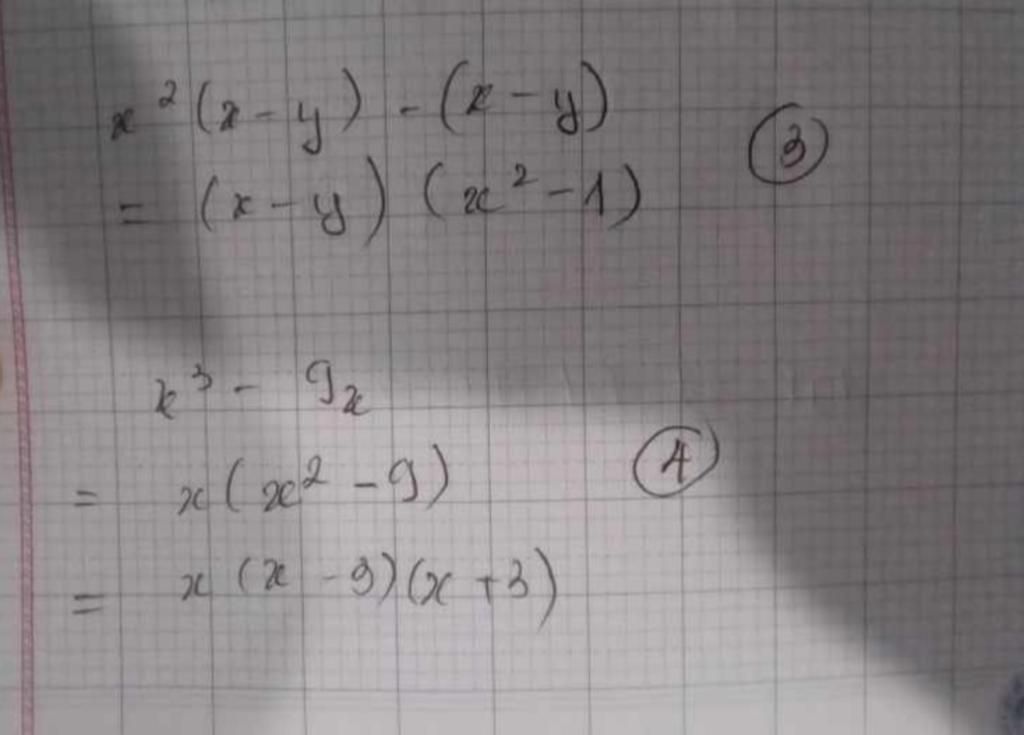 x²(x-y) - (x-y)
③
= (x-y) (x²-1)
x³ - 9x
= x(x²-9)
④
= x(x-3)(x+3)